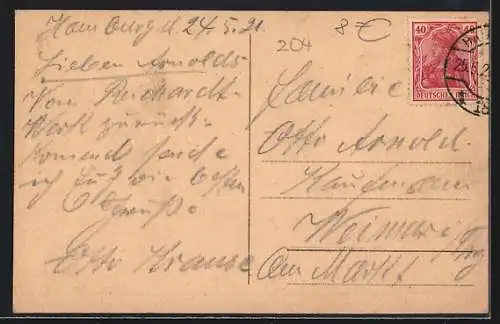 Hamburg d. 24.5.21.
Lieben Arnolds
Vom Reichardt-
Werk zurück-
komend sende
ich Euch die besten
Grüße
Otto Krause
204
8 €
40 40
DEUTSCHES
Familie
Otto Arnold
Kaufmann
Weimar i/Thg
Am Markt